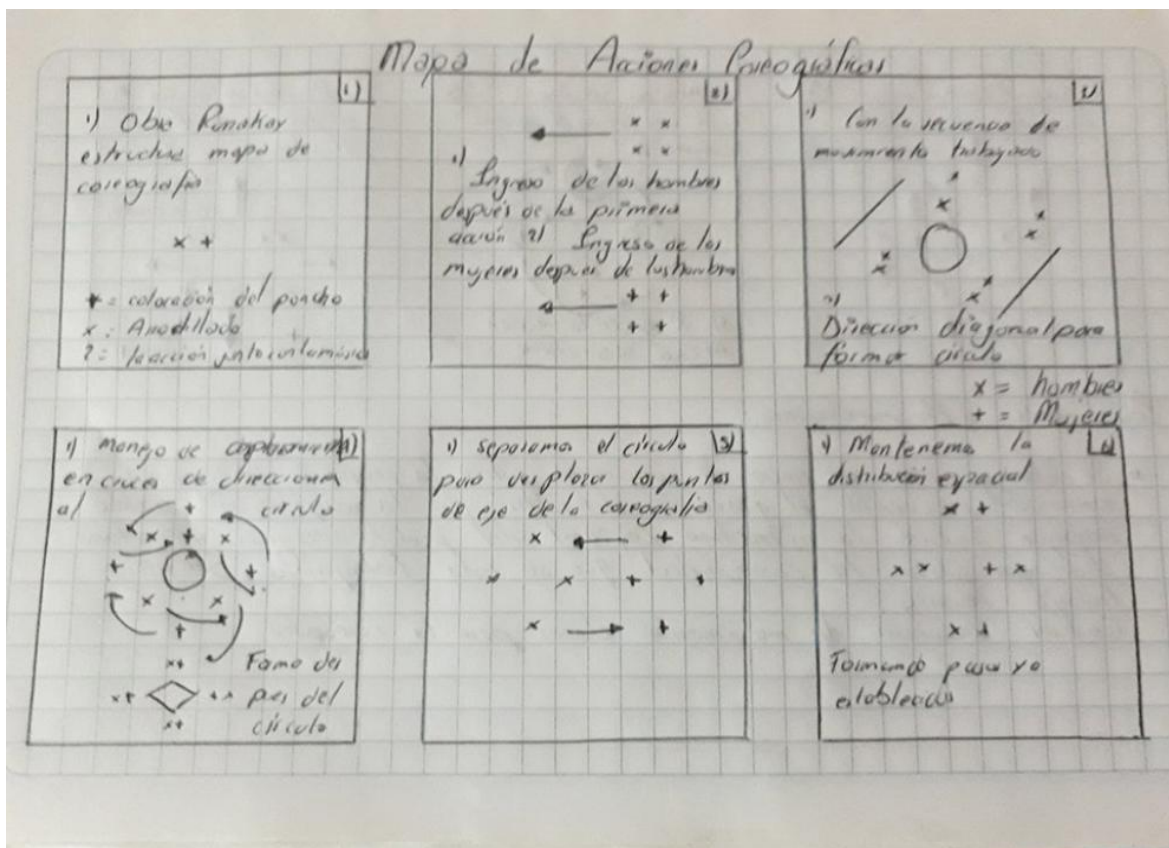 Mapa de Acciones Coreográficas
1)
1) Obra Runakay
estructura mapa de
coreografía
x +
+ = colocación del poncho
x = Arrodillado
2 =
2)
1)
Ingreso de los hombres
después de la primera
acción 2) Ingreso de las
mujeres despues de los hombres
3)
1) Con la secuencia de
movimiento trabajado
2)
Dirección diagonal para
formar circulo
x = hombres
+ = Mujeres
4)
1) manejo de
en cruces de direcciones
al circulo
Forma
del
circulo
5)
1) separamos el círculo
para los puntos
de eje de la coreografía
6)
1) Mantenemos la
distribución espacial
Formando ya